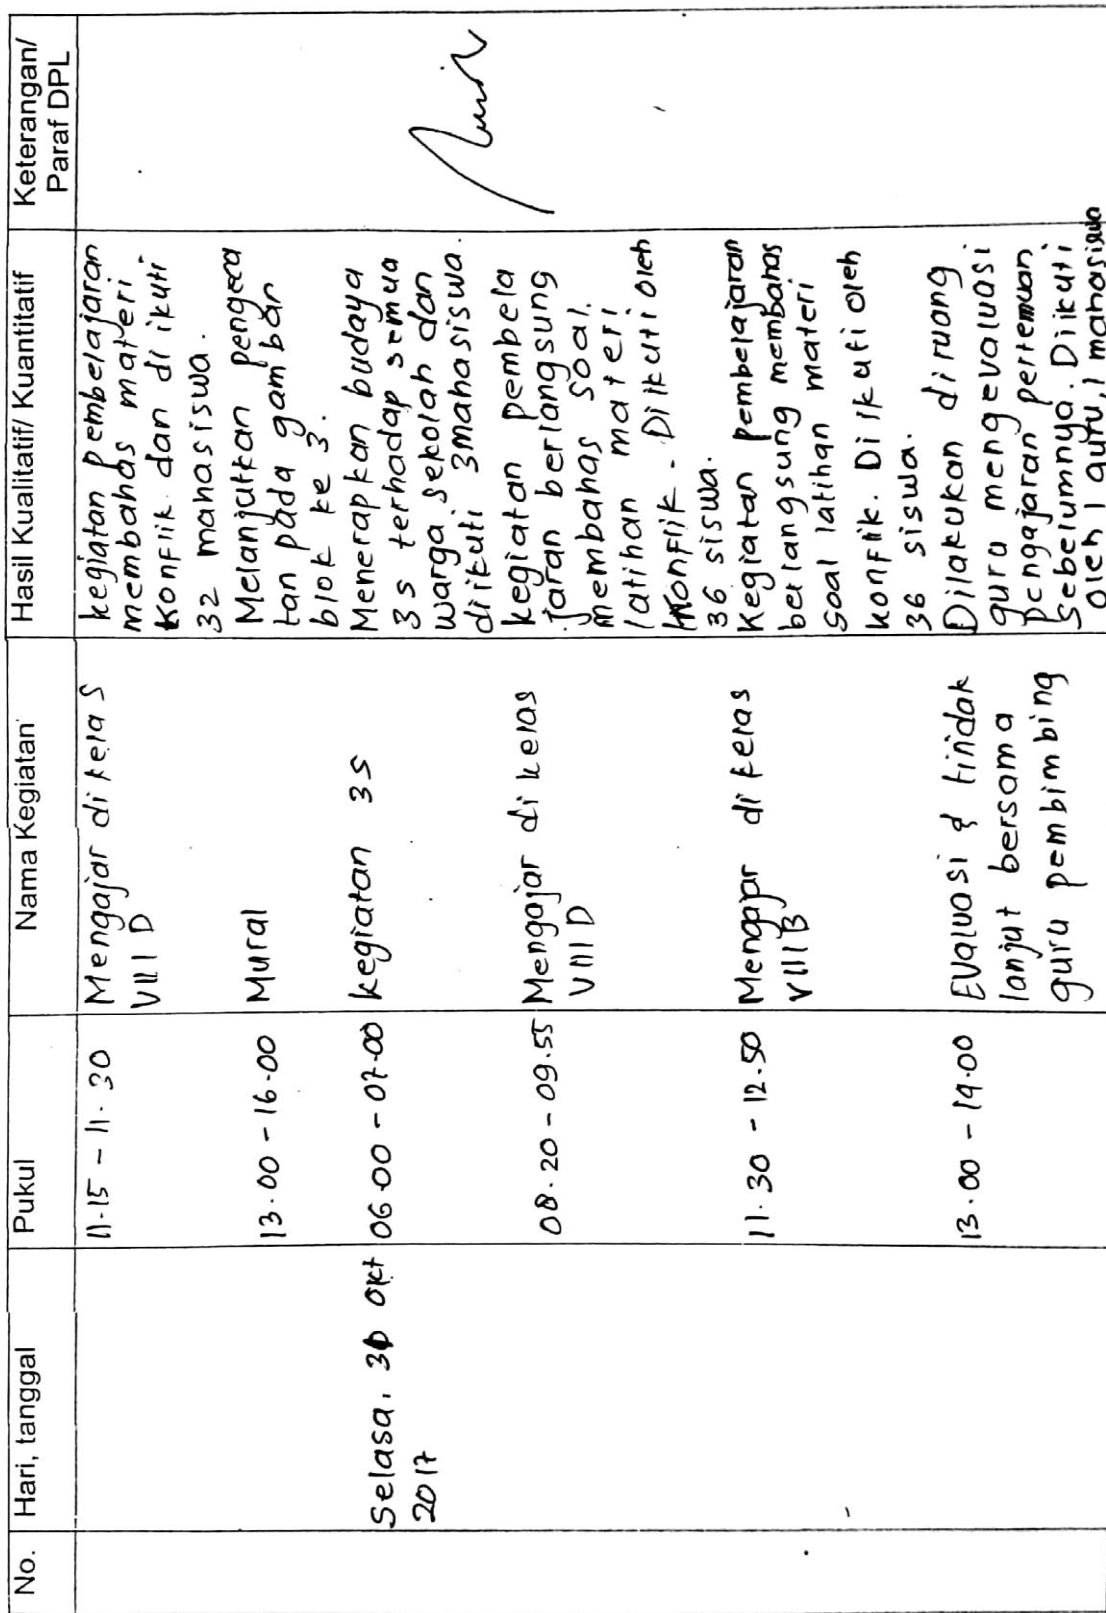 No.
Hari, tanggal
Pukul
Nama Kegiatan
Hasil Kualitatif/ Kuantitatif
Keterangan/
Paraf DPL
11.15 - 11.30
Mengajar di kelas
VIII D
kegiatan pembelajaran
membahas materi
konflik dan di ikuti
32 mahasiswa.
13.00 - 16.00
Mural
Melanjutkan pengeca
tan pada gambar
blok ke 3.
Selasa, 31 Okt
2017
06.00 - 07.00
kegiatan 3s
Menerapkan budaya
3s terhadap semua
warga sekolah dan
diikuti 3mahasiswa.
08.20 - 09.55
Mengajar di kelas
VIII D
kegiatan pembela
jaran berlangsung
membahas soal
latihan materi
konflik. Diikuti oleh
36 siswa.
11.30 - 12.50
Mengajar di kelas
VIII B
Kegiatan pembelajaran
berlangsung membahas
soal latihan materi
konflik. Diikuti oleh
36 siswa.
13.00 - 14.00
Evaluasi & tindak
lanjut bersama
guru pembimbing
Dilakukan diruang
guru mengevaluasi
pengajaran pertemuan
sebelumnya. Diikuti
oleh 1 guru, 1 mahasiswa